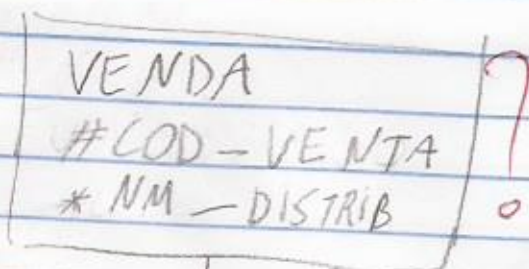 VENDA
#COD-VENTA
* NM_DISTRIB
?